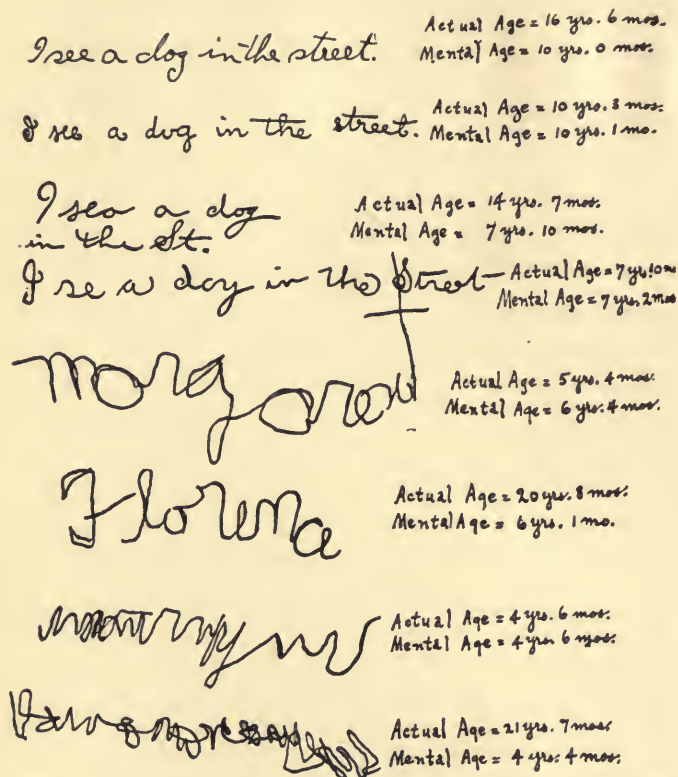 I see a dog in the street.
Actual Age = 16 yrs. 6 mos.
Mental Age = 10 yrs. 0 mos.
I see a dog in the street.
Actual Age = 10 yrs. 3 mos.
Mental Age = 10 yrs. 1 mo.
I seo a dog
in the St.
Actual Age = 14 yrs. 7 mos.
Mental Age = 7 yrs. 10 mos.
I se a doy in the Street
Actual Age = 7 yrs. 10 mo
Mental Age = 7 yrs. 2 mos
Morgoret
Actual Age = 5 yrs. 4 mos.
Mental Age = 6 yrs. 4 mos.
Florena
Actual Age = 20 yrs. 8 mos.
Mental Age = 6 yrs. 1 mo.
Actual Age = 4 yrs. 6 mos.
Mental Age = 4 yrs. 6 mos.
Actual Age = 21 yrs. 7 mos.
Mental Age = 4 yrs. 4 mos.